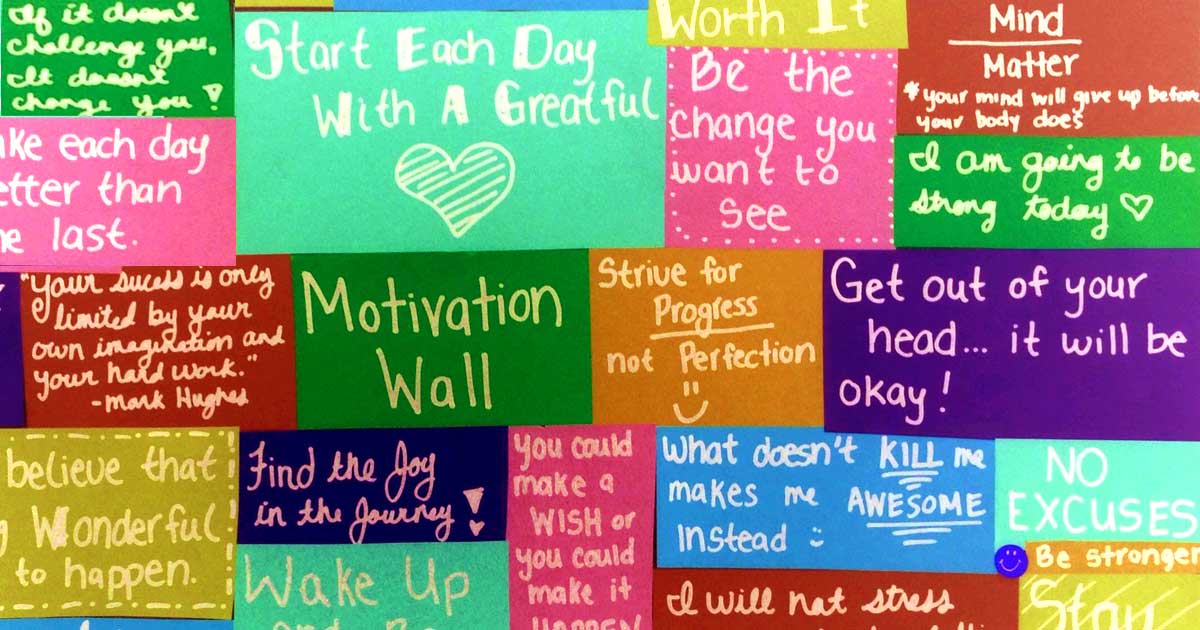 If it doesn't
challenge you,
It doesn't
change you!
Start Each Day
With A Greatful
Worth It
Be the
change you
want to
see
Mind
Matter
*your mind will give up before
your body does
I am going to be
strong today
each day
than
last.
"Your sucess is only
limited by your
own imagination and
your hard work."
-Mark Hughes
Motivation
Wall
Strive for
Progress
not Perfection
Get out of your
head... it will be
okay!
believe that
Wonderful
to happen.
Find the Joy
in the Journey!
you could
make a
WISH or
you could
make it
HAPPEN
What doesn't KILL me
makes me AWESOME
Instead
NO
EXCUSES
Be stronger
Wake Up
and Be
I will not stress
Stay